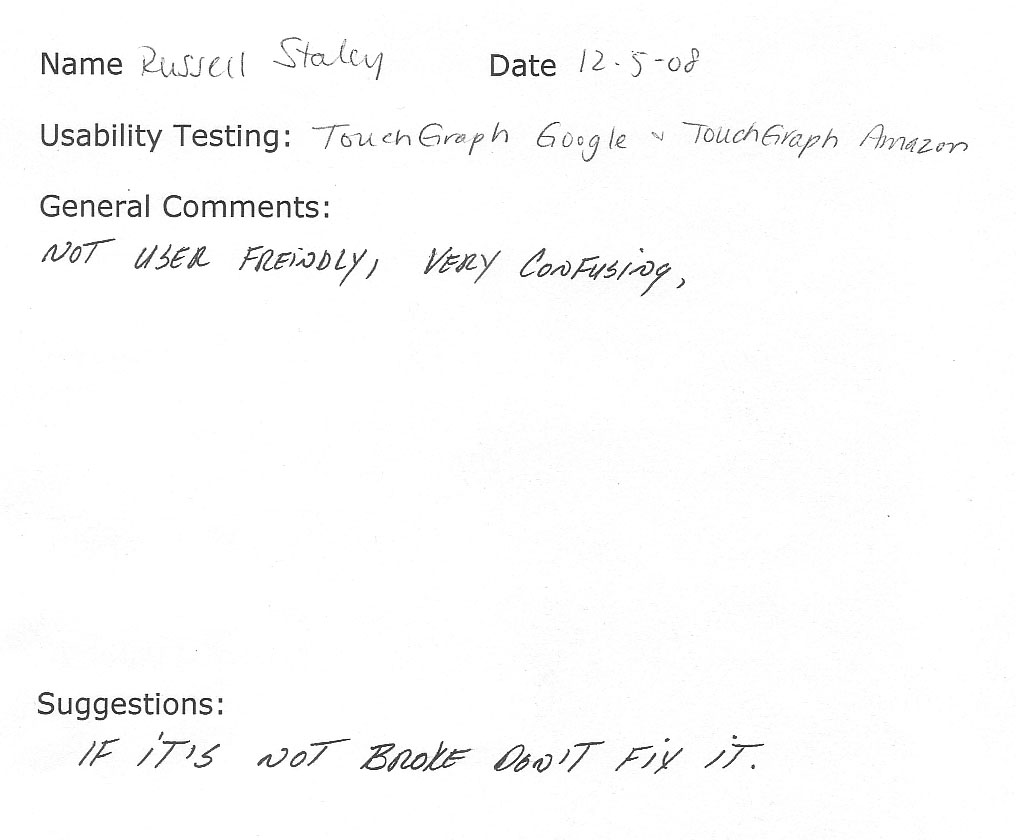 Name Russell Staley Date 12-5-08
Usability Testing: TouchGraph Google & TouchGraph Amazon
General Comments:
NOT USER FREINDLY, VERY CONFUSING,
Suggestions:
IF IT'S NOT BROKE DON'T FIX IT.